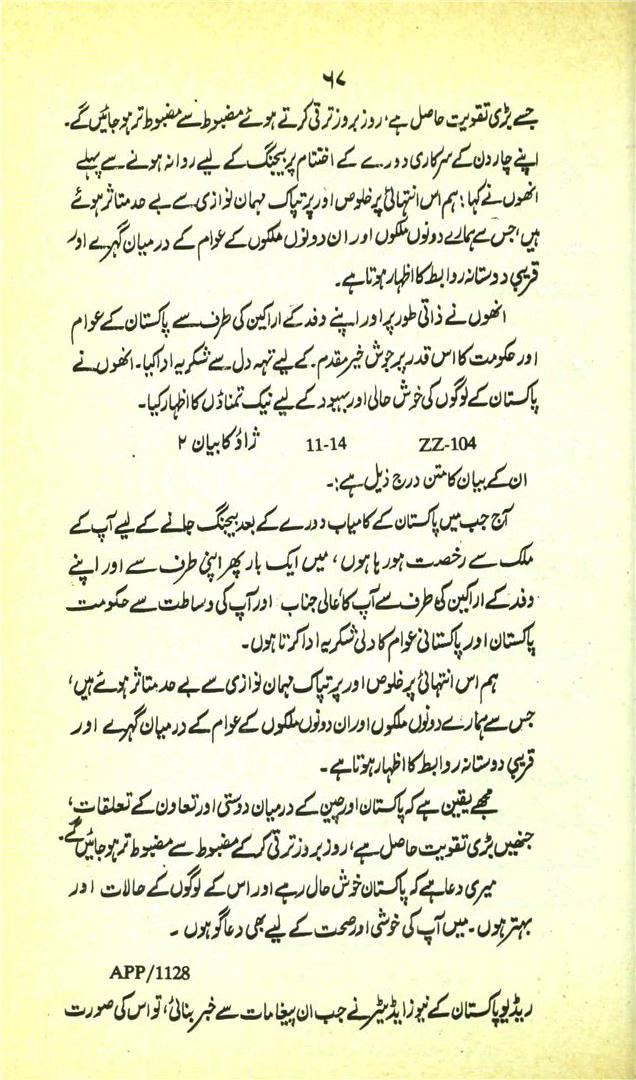 ۶۷
جسے بڑی تقویت حاصل ہے، روز بروز ترقی کرتے ہوئے مضبوط سے مضبوط تر ہو جائیں گے۔
اپنے چار دن کے سرکاری دورے کے اختتام پر بیجنگ کے لیے روانہ ہونے سے پہلے
انھوں نے کہا؛ ہم اس انتہائی پر خلوص اور پر تپاک مہمان نوازی سے بے حد متاثر ہوئے
ہیں، جس سے ہمارے دونوں ملکوں اور ان دونوں ملکوں کے عوام کے درمیان گہرے اور
قریبی دوستانہ روابط کا اظہار ہوتا ہے۔
انھوں نے ذاتی طور پر اور اپنے وفد کے اراکین کی طرف سے پاکستان کے عوام
اور حکومت کا اس قدر پر جوش خیر مقدم کے لیے تہہ دل سے شکریہ ادا کیا۔ انھوں نے
پاکستان کے لوگوں کی خوش حالی اور بہبود کے لیے نیک تمناؤں کا اظہار کیا۔
ZZ-104 11-14 ژاؤ کا بیان ۲
ان کے بیان کا متن درج ذیل ہے:۔
آج جب میں پاکستان کے کامیاب دورے کے بعد بیجنگ جانے کے لیے آپ کے
ملک سے رخصت ہو رہا ہوں، میں ایک بار پھر اپنی طرف سے اور اپنے
وفد کے اراکین کی طرف سے آپ کا عالی جناب اور آپ کی وساطت سے حکومت
پاکستان اور پاکستانی عوام کا دلی شکریہ ادا کرتا ہوں۔
ہم اس انتہائی پر خلوص اور پر تپاک مہمان نوازی سے بے حد متاثر ہوئے ہیں،
جس سے ہمارے دونوں ملکوں اور ان دونوں ملکوں کے عوام کے درمیان گہرے اور
قریبی دوستانہ روابط کا اظہار ہوتا ہے۔
مجھے یقین ہے کہ پاکستان اور چین کے درمیان دوستی اور تعاون کے تعلقات،
جنھیں بڑی تقویت حاصل ہے، روز بروز ترقی کر کے مضبوط سے مضبوط تر ہو جائیں گے۔
میری دعا ہے کہ پاکستان خوش حال رہے اور اس کے لوگوں کے حالات اور
بہتر ہوں۔ میں آپ کی خوشی اور صحت کے لیے بھی دعا گو ہوں۔
APP/1128
ریڈیو پاکستان کے نیوز ایڈیٹر نے جب ان پیغامات سے خبر بنائی، تو اس کی صورت